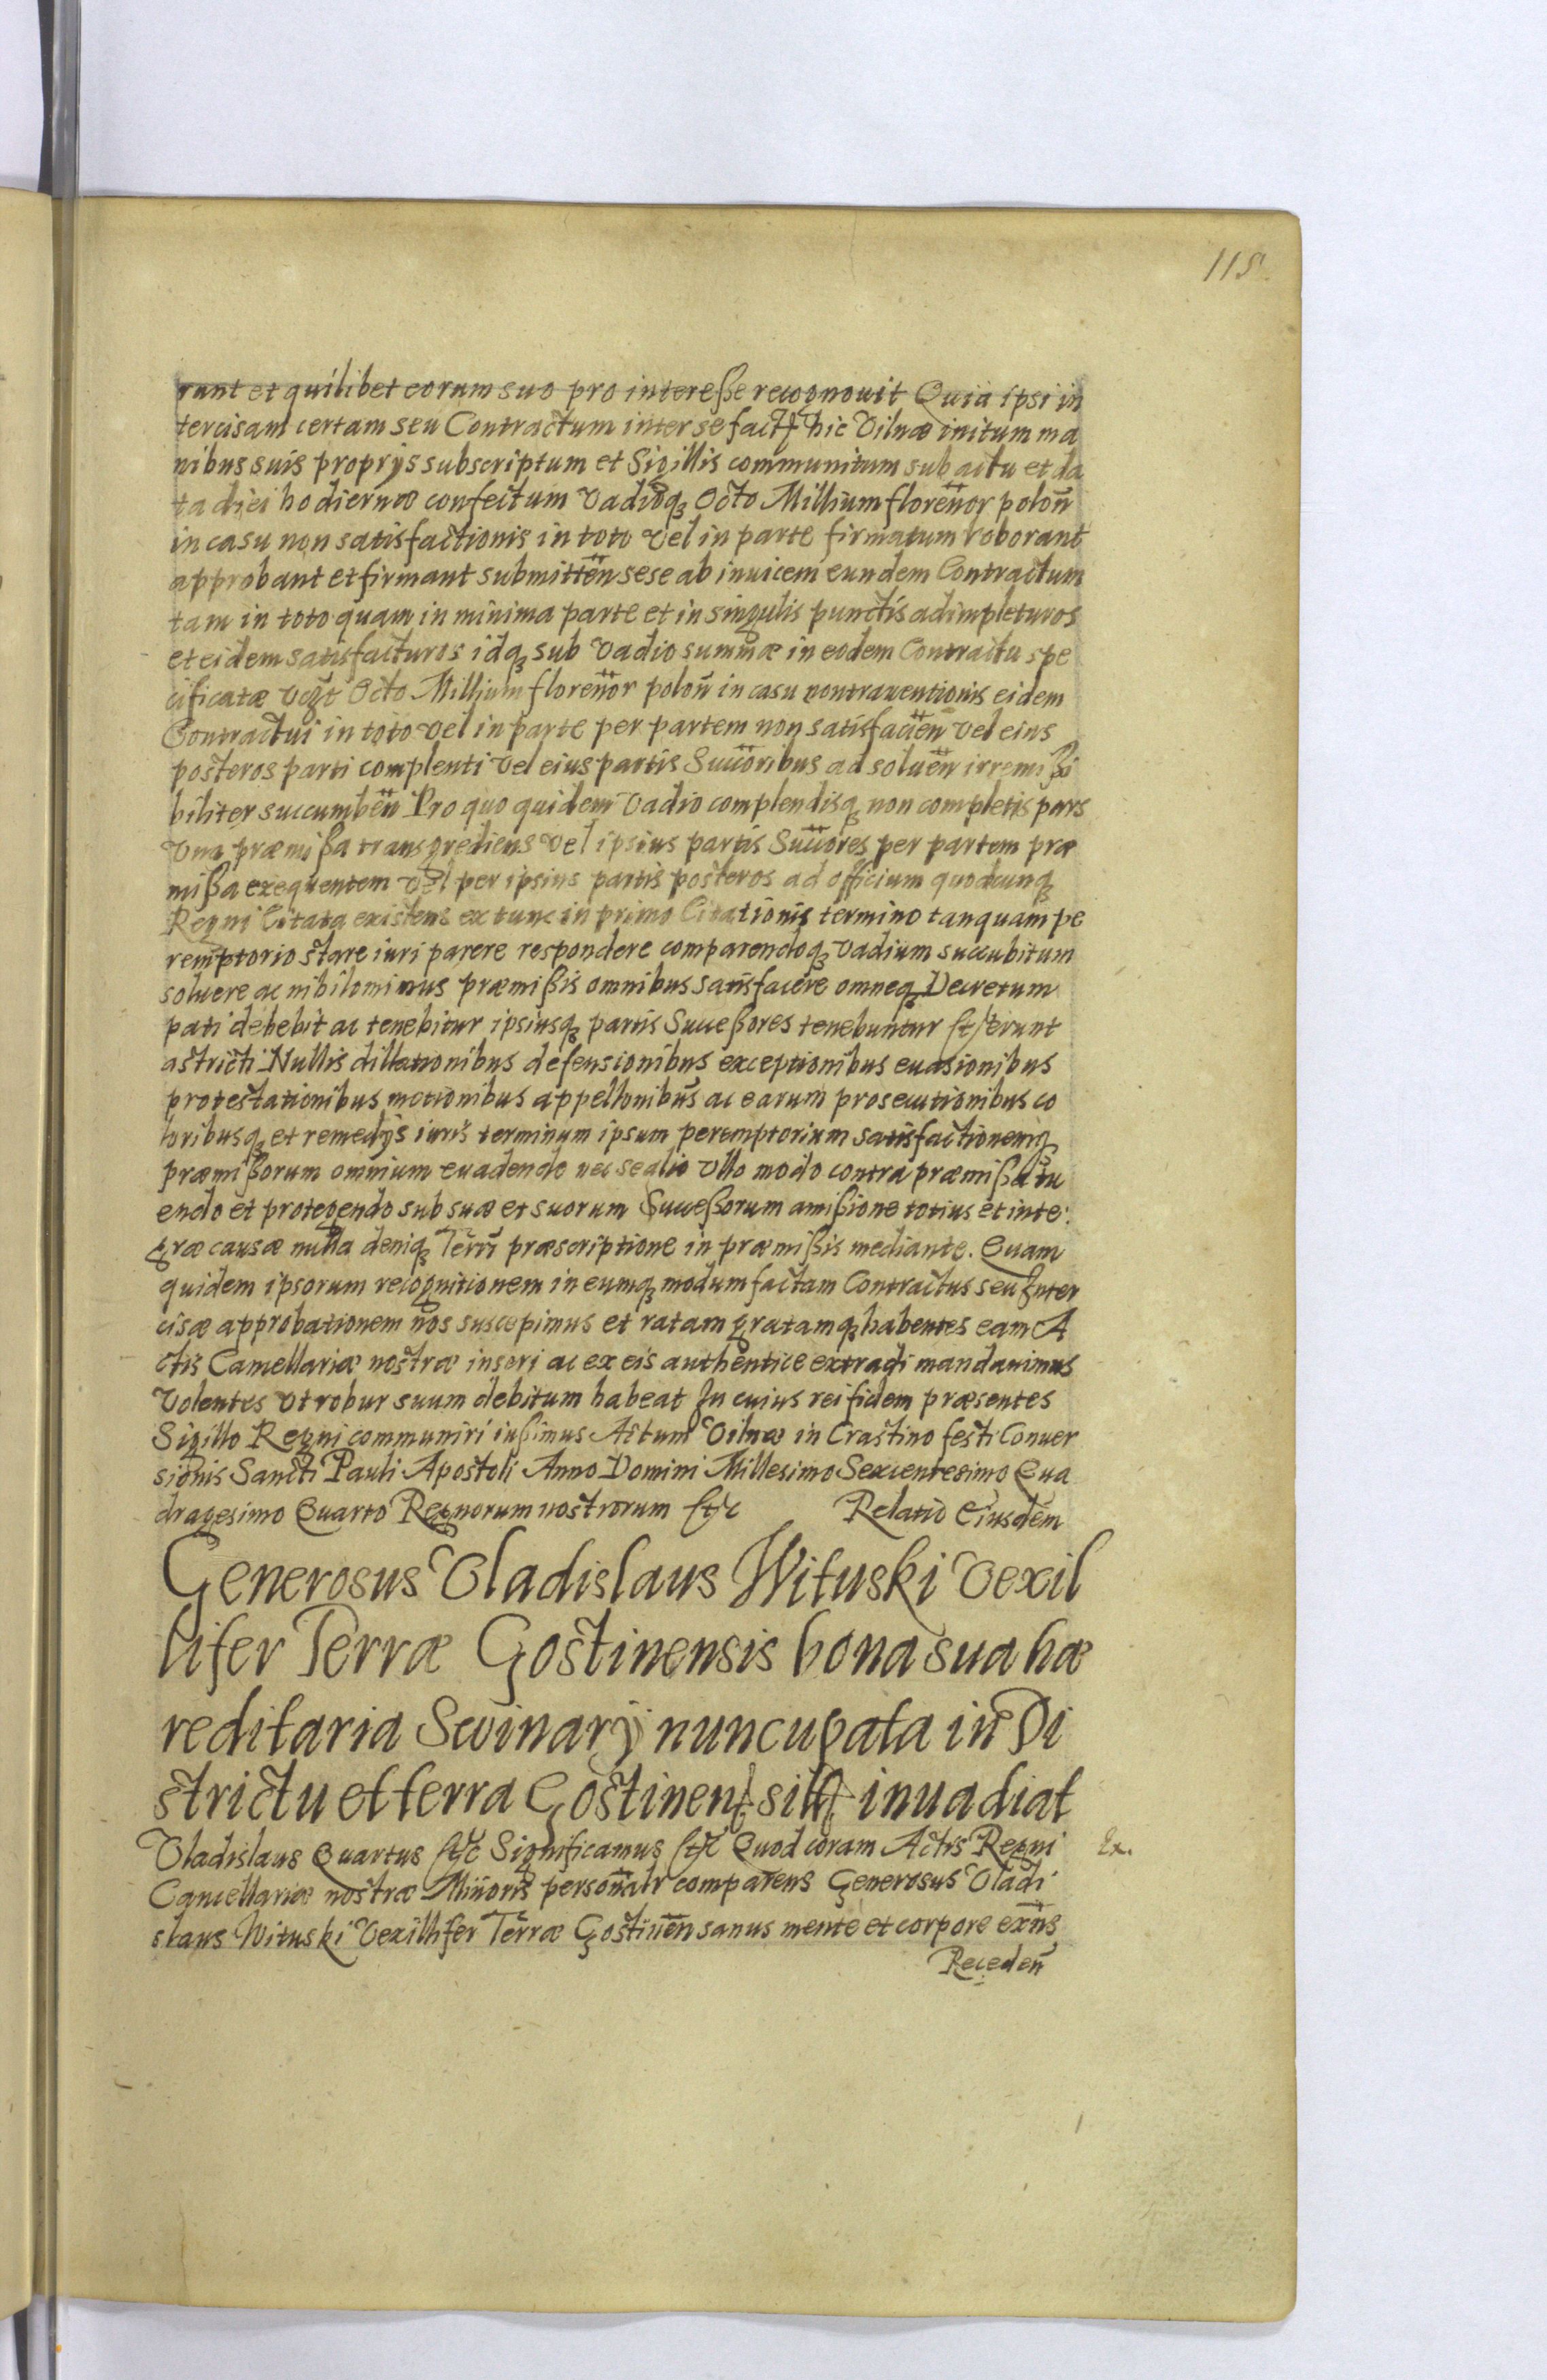 115
rant et quilibet eorum suo pro interesse recognouit Quia ipsi in
tercisam certam seu Contractum inter se hic Vilnæ initum ma
nibus suis proprijs subscriptum et Sigillis communitum sub actu et da
ta diei hodiernæ confectum Vadioq₃ Octo Millium florenor polon̄
in casu non satisfactionis in toto vel in parte firmatum roborant
approbant et firmant submitten̄ sese ab inuicem eundem Contractum
tam in toto quam in minima parte et in singulis punctis adimpleturos
et eidem satisfacturos idq₃ sub Vadio summæ in eodem Contractu spe
cificatæ Vcꝫt Octo Millium florenor polon̄ in casu contrauentionis eidem
Contractui in toto vel in parte per partem non satisfacien̄ vel eius
posteros parti complenti vel eius partis Succoribus ad soluen̄ irremißi
biliter succumben̄ Pro quo quidem Vadio complendisq₃ non completis pars
Vna præmißa transgrediens vel ipsius partis Succores per partem præ
mißa exequentem vel per ipsius partis posteros ad officium quodcunq₃
Regni Citata existens ex tunc in primo Citationis termino tanquam pe
remptorio stare iuri parere respondere comparendoq₃ Vadium succubitum
soluere ac nihilominus præmißis omnibus satisfacere omneq₃ Decretum
pati debebit ac tenebitur ipsiusq₃ partis Succeßores tenebuntur et erunt
astricti Nullis dillationibus defensionibus exceptionibus euasionibus
protestationibus motionibus appellonibus̄ ac earum prosecutionibus co
loribusq₃ et remedijs iuris terminum ipsum peremptorium satisfactionemq₃
præmißorum omnium euadendo nec se alio Vllo modo contra præmißa tu
endo et protegendo sub suæ et suorum Succeßorum amißione totius et inte:
græ causæ nulla deniq₃ Terrī præscriptione in præmißis mediante. Quam
quidem ipsorum recognitionem in eumq₃ modum factam Contractus seu Inter
cisæ approbationem nos suscepimus et ratam gratamq₃ habentes eam A
ctis Cancellariæ nostræ inseri ac ex eis authentice extradi mandauimus
Volentes vt robur suum debitum habeat In cuius rei fidem præsentes
Sigillo Regni communiri iußimus Actum Vilnæ in Crastino festi Conuer
sionis Sancti Pauli Apostoli Anno Domini Millesimo Sexcentesimo Qua
dragesimo Quarto Regnorum nostrorum etc Relatio Eiusdem
Generosus Vladislaus Wituski Vexil
lifer Terræ Gostinensis bona sua hæ
reditaria Swinary nuncupata in Di
strictu et terra Gostinen sitt inuadiat
Vladislaus Quartus etc Significamus etc Quod coram Actis Regni Ex.
Cancellariæ nostræ Minoris personalr comparens Generosus Vladi
slaus Wituski Vexillifer Terræ Gostinen̄ sanus mente et corpore exn̄s
Receden̄